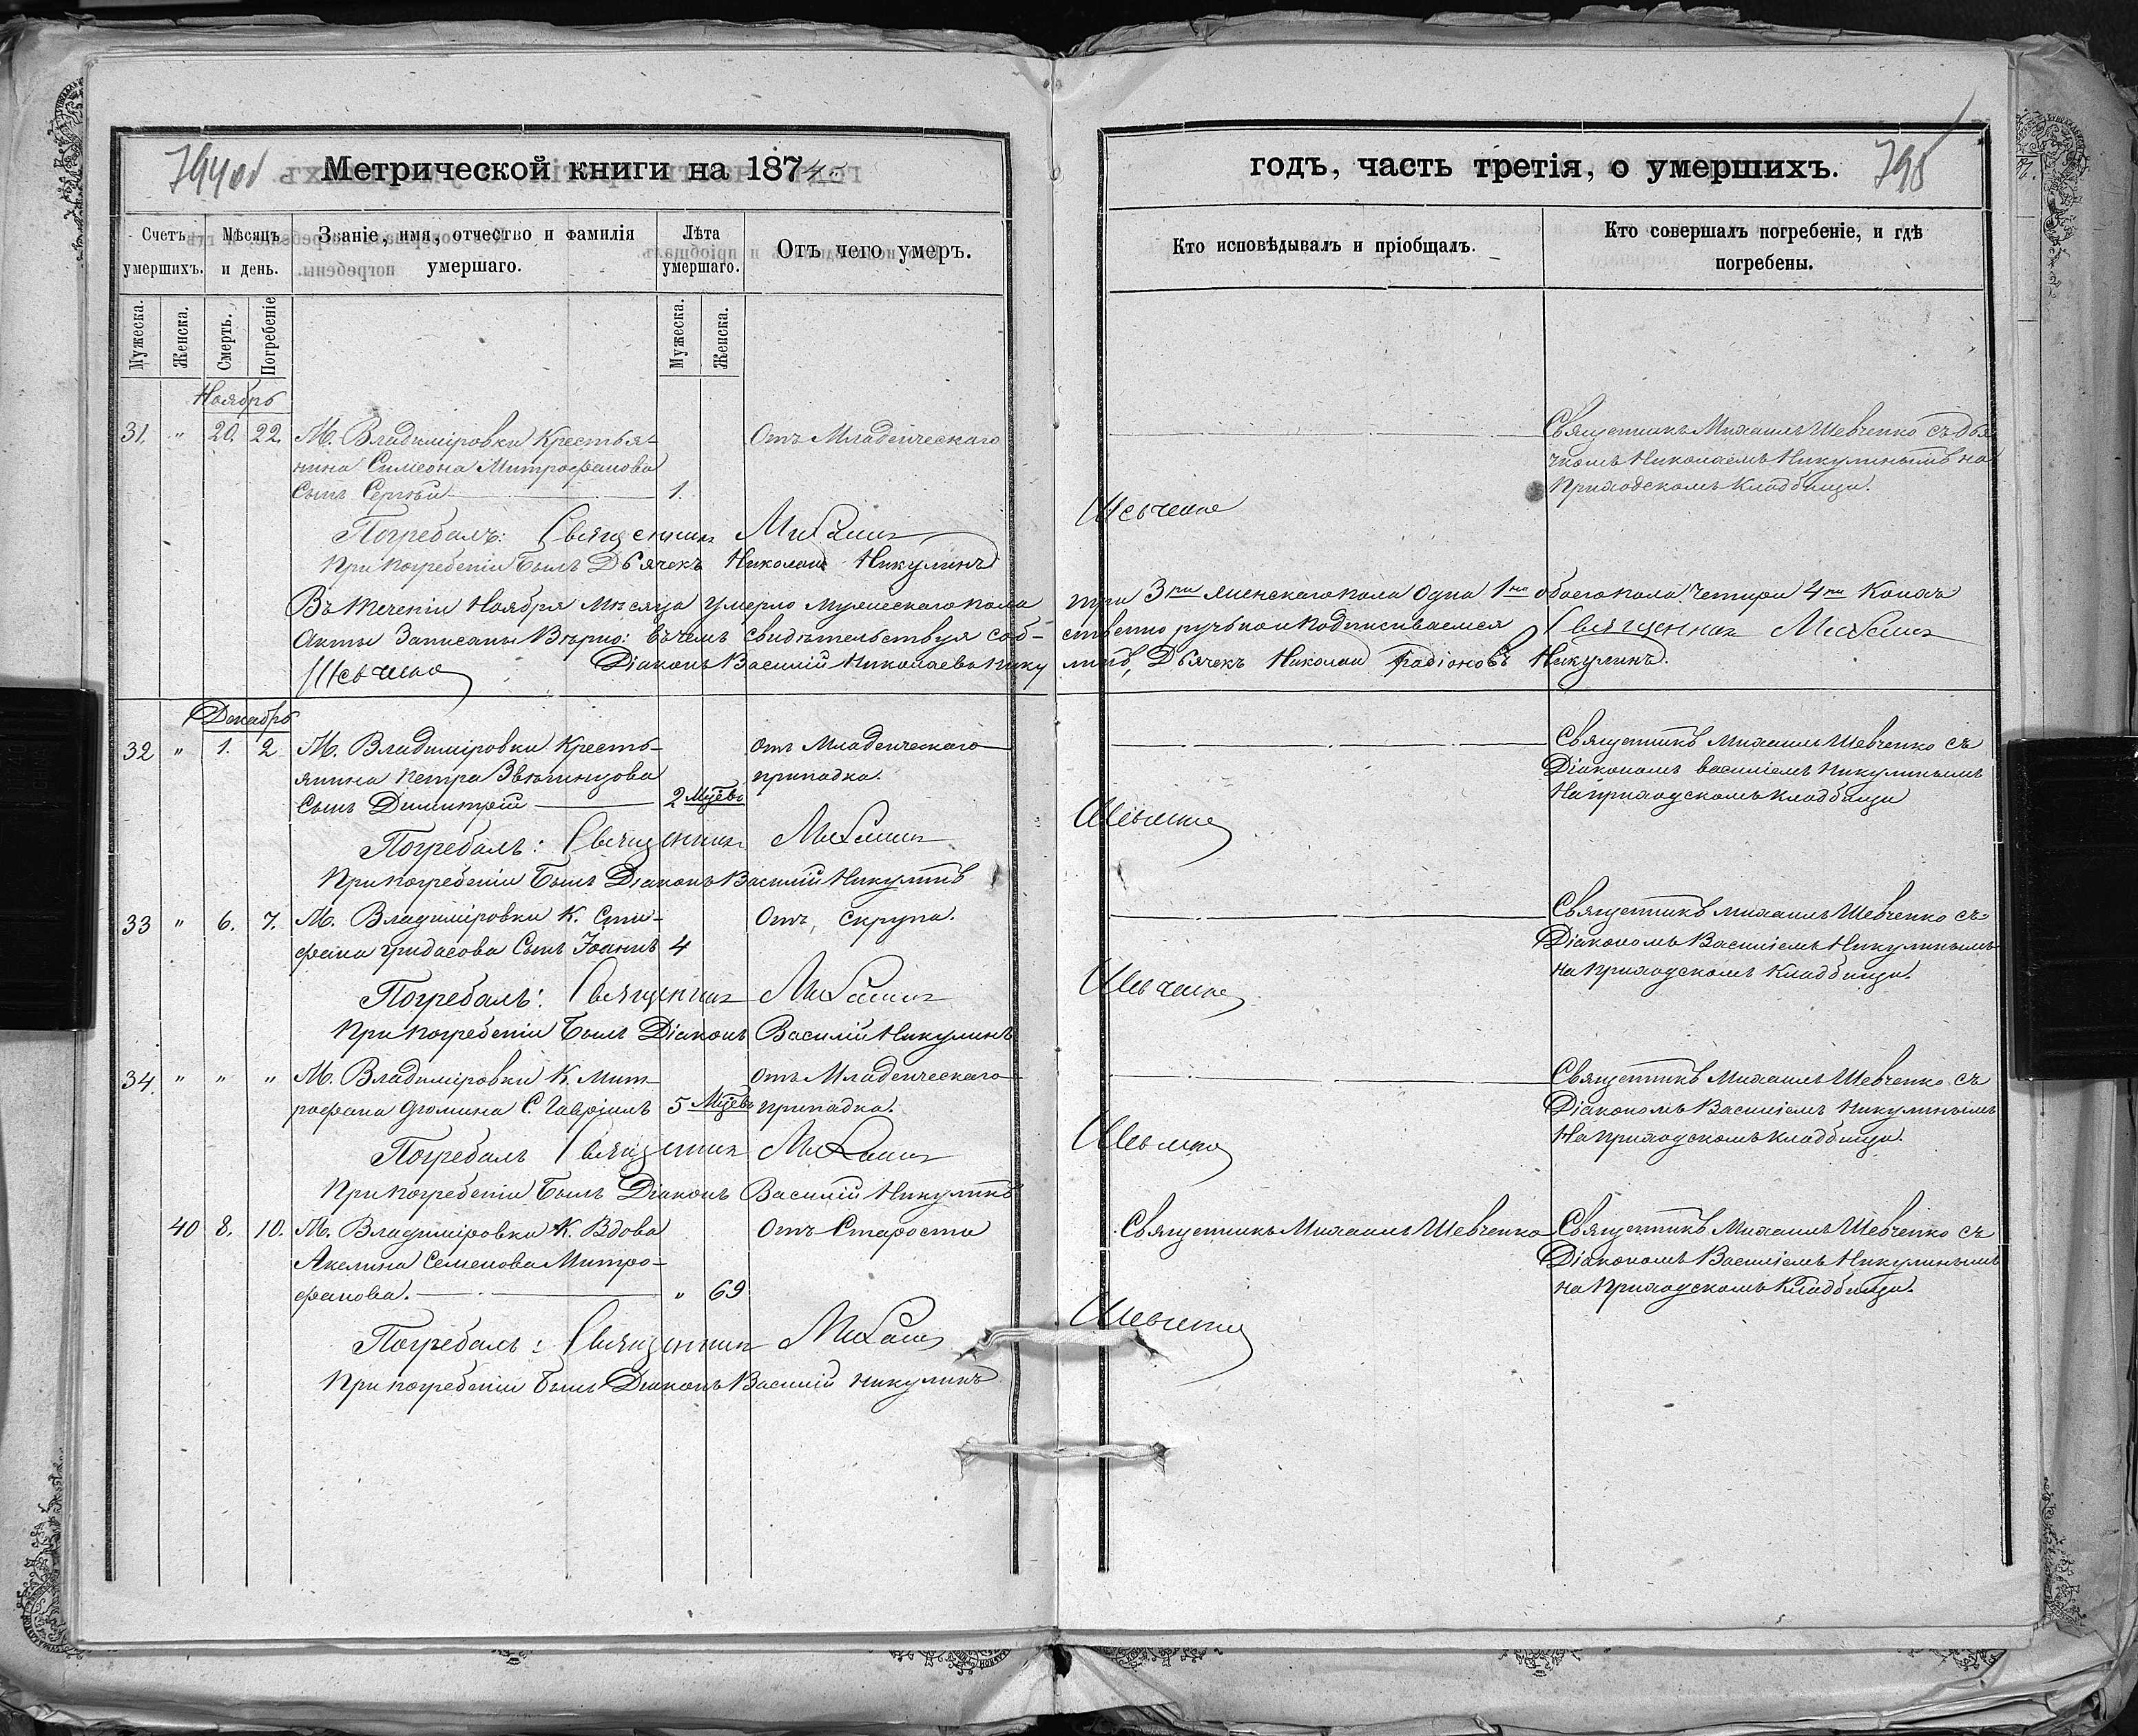 794 об
Метрической книги на 1874.
Счетъ умершихъ.
Мѣсяцъ и день.
Званіе, имя, отчество и фамилія умершаго.
Лѣта умершаго.
Отъ чего умеръ.
Мужеска.
Женска.
Смерть.
Погребеніе
Мужеска.
Женска.
Ноябрь
31. " 20. 22. М. Владиміровки Крестья- Отъ Младенческаго
нина Симеона Митрофанова
Сынъ Сергѣй 1.
Погребалъ: Священникъ Михаилъ
При погребеніи былъ Дьячекъ Николай Никулинъ
Въ теченіи Ноября Мѣсяца умерло мужескаго пола
Акты Записаны Вѣрно: въ чемъ свидѣтельствуя соб-
Шевченко Діаконъ Василій Николаевъ Нику
Декабрь
32 " 1. 2 М. Владиміровки Кресть- отъ Младенческаго
янина Петра Звягинцова припадка.
Сынъ Димитрій 2 Мцѣвъ
Погребалъ: Священникъ Михаилъ
При погребеніи былъ Діаконъ Василій Никулинъ
33 " 6. 7. М. Владиміровки К. Сти- Отъ, скрупа.
фана Гридасова Сынъ Іоаннъ 4
Погребалъ: Священникъ Михаилъ
При погребеніи былъ Діаконъ Василій Никулинъ
34. " " " М. Владиміровки К. Мит- отъ Младенческаго
рофана С. Гавріилъ 5 Мцѣвъ припадка.
Погребалъ Священникъ Михаилъ
При погребеніи былъ Діаконъ Василій Никулинъ
40 8. 10. М. Владиміровки К. Вдова Отъ Старости
Акелина Семенова Митро-
фанова. " 69
Погребалъ: Священникъ Михаилъ
При погребеніи былъ Діаконъ Василій Никулинъ
795
годъ, часть третія, о умершихъ.
Кто исповѣдывалъ и пріобщалъ.
Кто совершалъ погребеніе, и гдѣ погребены.
Священникъ Михаилъ Шевченко съ дья
чкомъ Николаемъ Никулинымъ на
Приходскомъ кладбищи.
Шевченко
три 3ри женскаго пола одна 1на обоего пола четыри 4ри Коихъ
ственно ручьно и подписиваемся Священникъ Михаилъ
линъ, Дьячекъ Николай Радіоновъ Никулинъ.
Священникъ Михаилъ Шевченко съ
Діакономъ Василіемъ Никулинымъ
На приходскомъ кладбищи
Шевченко
Священникъ Михаилъ Шевченко съ
Діакономъ Василіемъ Никулинымъ
на Приходскомъ кладбищи.
Шевченко
Священникъ Михаилъ Шевченко съ
Діакономъ Василіемъ Никулинымъ
На приходскомъ кладбищи.
Шевченко
Священникъ Михаилъ Шевченко Священникъ Михаилъ Шевченко съ
Діакономъ Василіемъ Никулинымъ
на Приходскомъ Кладбищи.
Шевченко